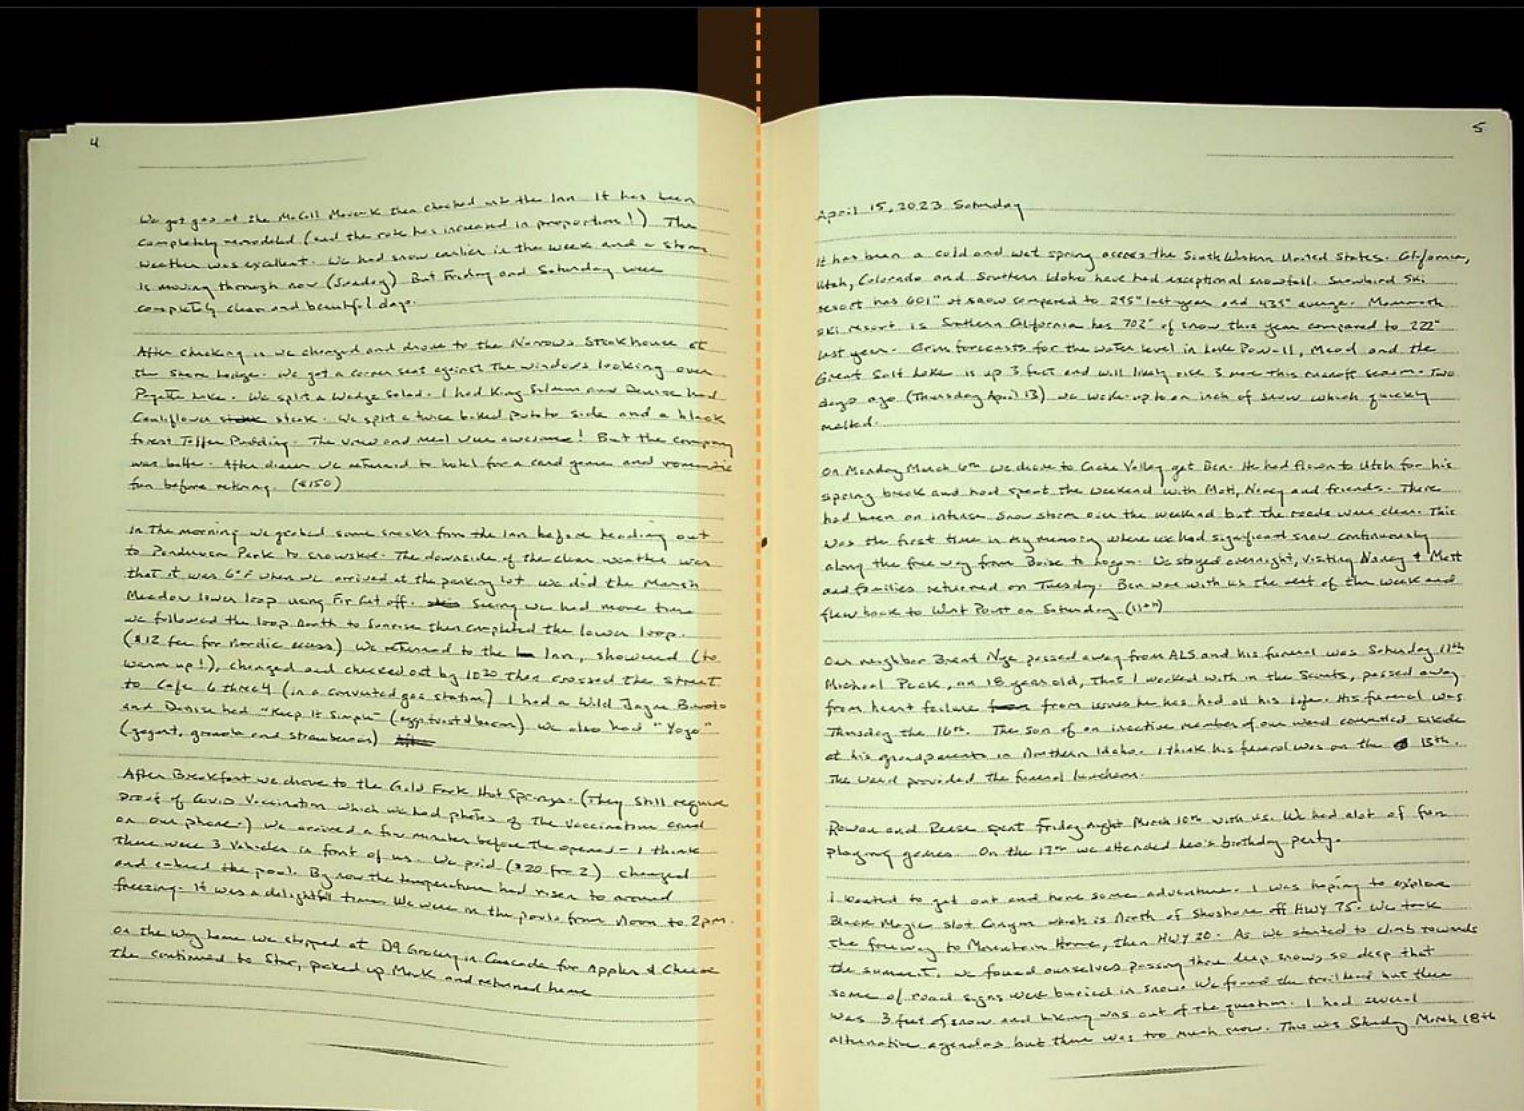 4
We got gas at the McCall Maverik then checked into the Inn. It has been
completely remodeled (and the rate has increased in proportion!) The
weather was excellent. We had snow earlier in the week and a storm
is moving through now (Sunday) But Friday and Saturday were
completely clear and beautiful days.
After checking in we changed and drove to the Narrows Steakhouse at
the Shore Lodge. We got a corner seat against the windows looking over
Payette Lake. We split a Wedge Salad. I had King Salmon and Denise had
Cauliflower steak. We split a twice baked potato side and a black
forest Toffee Pudding. The view and meal were awesome! But the company
was better. After dinner we returned to hotel for a card game and romantic
fun before retiring. ($150)
In the morning we grabbed some snacks from the Inn before heading out
to Ponderosa Park to snowshoe. The downside of the clear weather was
that it was 6°F when we arrived at the parking lot. We did the Marsh
Meadow lower loop using Fir Cut off. Seeing we had more time
we followed the loop North to Sunrise then completed the lower loop.
($12 fee for Nordic access) We returned to the Inn, showered (to
warm up!), changed and checked out by 1030 then crossed the street
to Cafe 6 three 4 (in a converted gas station) I had a Wild Jayne Burrito
and Denise had "Keep It Simple" (egg, toast & bacon) We also had "Yogo"
(yogurt, granola and strawberries)
After Breakfast we drove to the Gold Fork Hot Springs. (They still require
proof of Covid Vaccination which we had photos of the vaccination card
on our phone.) We arrived a few minutes before the opened - I think
there were 3 Vehicles in front of us. We paid ($20 for 2) changed
and entered the pool. By now the temperature had risen to around
freezing. It was a delightful time. We were in the pools from Noon to 2pm.
On the way home we stopped at D9 Grocery in Cascade for Apples & Cheese
the continued to Star, picked up Mark and returned home
5
April 15, 2023 Saturday
It has been a cold and wet spring across the South Western United States. California,
Utah, Colorado and Southern Idaho have had exceptional snowfall. Snowbird Ski
resort has 601" of snow compared to 295" last year and 435" average. Mammoth
ski resort is Southern California has 702" of snow this year compared to 222"
last year. Grim forecasts for the water level in Lake Powell, Mead and the
Great Salt Lake is up 3 feet and will likely rise 3 more this runoff season. Two
days ago (Thursday April 13) we woke up to an inch of snow which quickly
melted.
On Monday March 6th we drove to Cache Valley get Ben. He had flown to Utah for his
spring break and had spent the weekend with Matt, Nancy and friends. There
had been an intense snow storm over the weekend but the roads were clear. This
was the first time in my memory where we had significant snow continuously
along the freeway from Boise to Logan. We stayed overnight, visiting Nancy & Matt
and families returned on Tuesday. Ben was with us the rest of the week and
flew back to West Point on Saturday (11th)
Our neighbor Brent Nye passed away from ALS and his funeral was Saturday 11th
Michael Peck, an 18 year old, that I worked with in the Scouts, passed away
from heart failure from issues he has had all his life. His funeral was
Thursday the 16th. The son of an inactive member of our ward committed suicide
at his grandparents in Northern Idaho. I think his funeral was on the 13th.
The ward provided the funeral luncheon.
Rowan and Reese spent Friday night March 10th with us. We had alot of fun
playing games. On the 17th we attended Leo's birthday party.
I wanted to get out and have some adventure. I was hoping to explore
Black Magic Slot Canyon which is North of Shoshone off HWY 75. We took
the freeway to Mountain Home, then HWY 20. As we started to climb towards
the summit, we found ourselves passing thru deep snow, so deep that
some of road signs were buried in snow. We found the trailhead but there
was 3 feet of snow and hiking was out of the question. I had several
alternative agendas but there was too much snow. This was March 18th